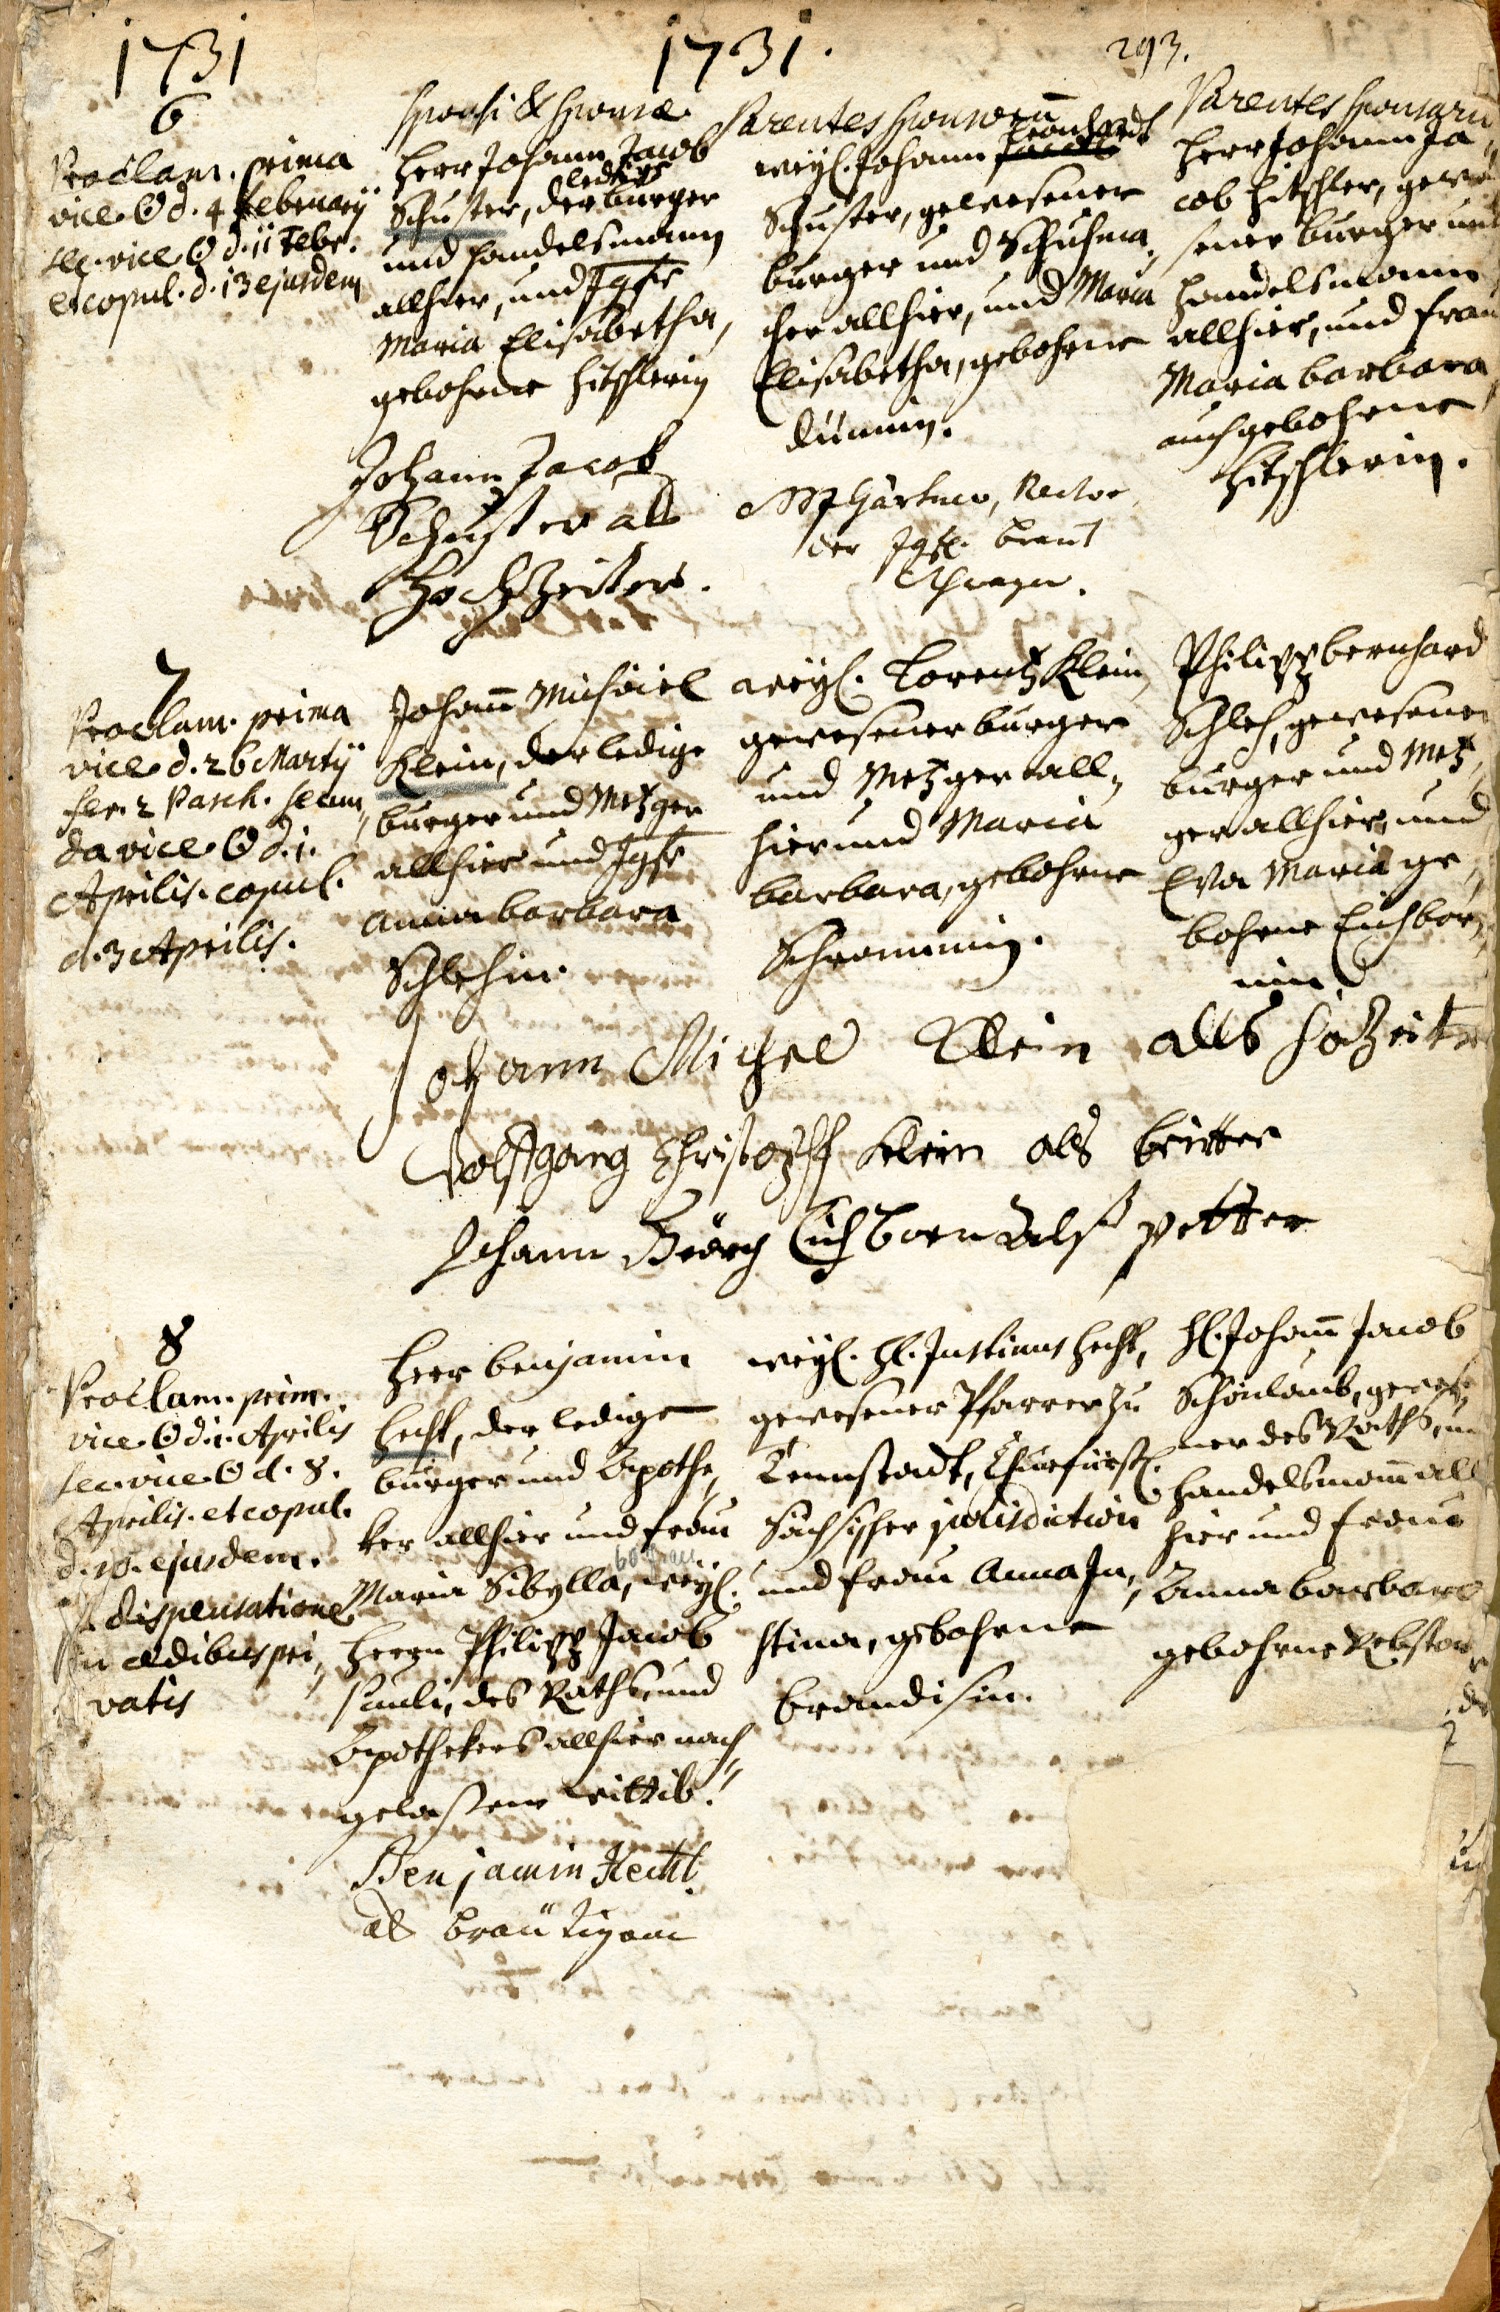 1731
1731.
293.
6
Proclam. prima
vice ☉ d. 4 Februarÿ
sec. vice ☉ d. 11 Febr.
et copul. d. 13 ejusdem
Sponsi & Sponsæ
Herr Johann Jacob
Schuster, der ledige burger
und Handelsmann
allhier, und Jgfr
Maria Elisabetha,
gebohrne Hitschlerin
Johann Jacob
Schuster als
HochZeiter.
Parentes Sponsorum
weÿl. Johann Leonhardt
Schuster, gewesener
burger und Schuhma,
cher allhier, und Maria
Elisabetha, gebohrne
Gärtner, Rector
der Jgfr. Braut
Parentes Sponsaru
Herr Johann Ja,
cob Hitschler, gewe
sener burger und
Handelsmann
allhier, und Frau
Maria Barbara
auch gebohrne
Hitschlerin.
7
Proclam. prima
vice d. 26 Martÿ
fer. 2 Pasch. secun,
da vice ☉ d. 1.
Aprilis. copul.
d. 3 Aprilis.
Johann Michael
Klein, der ledige
burger und Metzger
allhier und Jgfr
Anna Barbara
Schlehin.
weÿl. Lorentz Klein,
gewesener burger
und Metzger all,
hier und Maria
Barbara, gebohrne
Schrammin.
Philipp Bernhard
Schleh, gewesener
burger und Metz,
ger allhier, und
Eva Maria ge,
bohrne Eichbor,
nin.
Johann Michel Klein alls HoZeiter
Wolfgang Christopff Klein als brutter
Johann Georg Eichborn Alß Vetter
8
Proclam. prim.
vice ☉ d. 1. Aprilis
sec. vice ☉ d. 8.
Aprilis. et copul.
d. 10. ejusdem.
dispensatione
in ædibus pri,
vatis
Herr Benjamin
Hecht, der ledige
burger und Apothe,
ker allhier und Frau
Maria Sibylla, weÿl.
Herrn Philipp Jacob
Pauli, des Raths, und
Apothekers allhier nach,
gelaßene Wittib.
Benjamin Hecht
als Bräutigam
weÿl. H. Justinus Hecht,
gewesener Pfarrer zu
Tennstadt, Churfürstl.
Sächsischer jurisdiction
und Frau Anna Ju,
stina, gebohrne
Brandisin.
H. Johann Jacob
Schönlaub, gewese
ner des Raths, un
Handelsmann all
hier und Frau
Anna Barbara
gebohrne Rebstöck